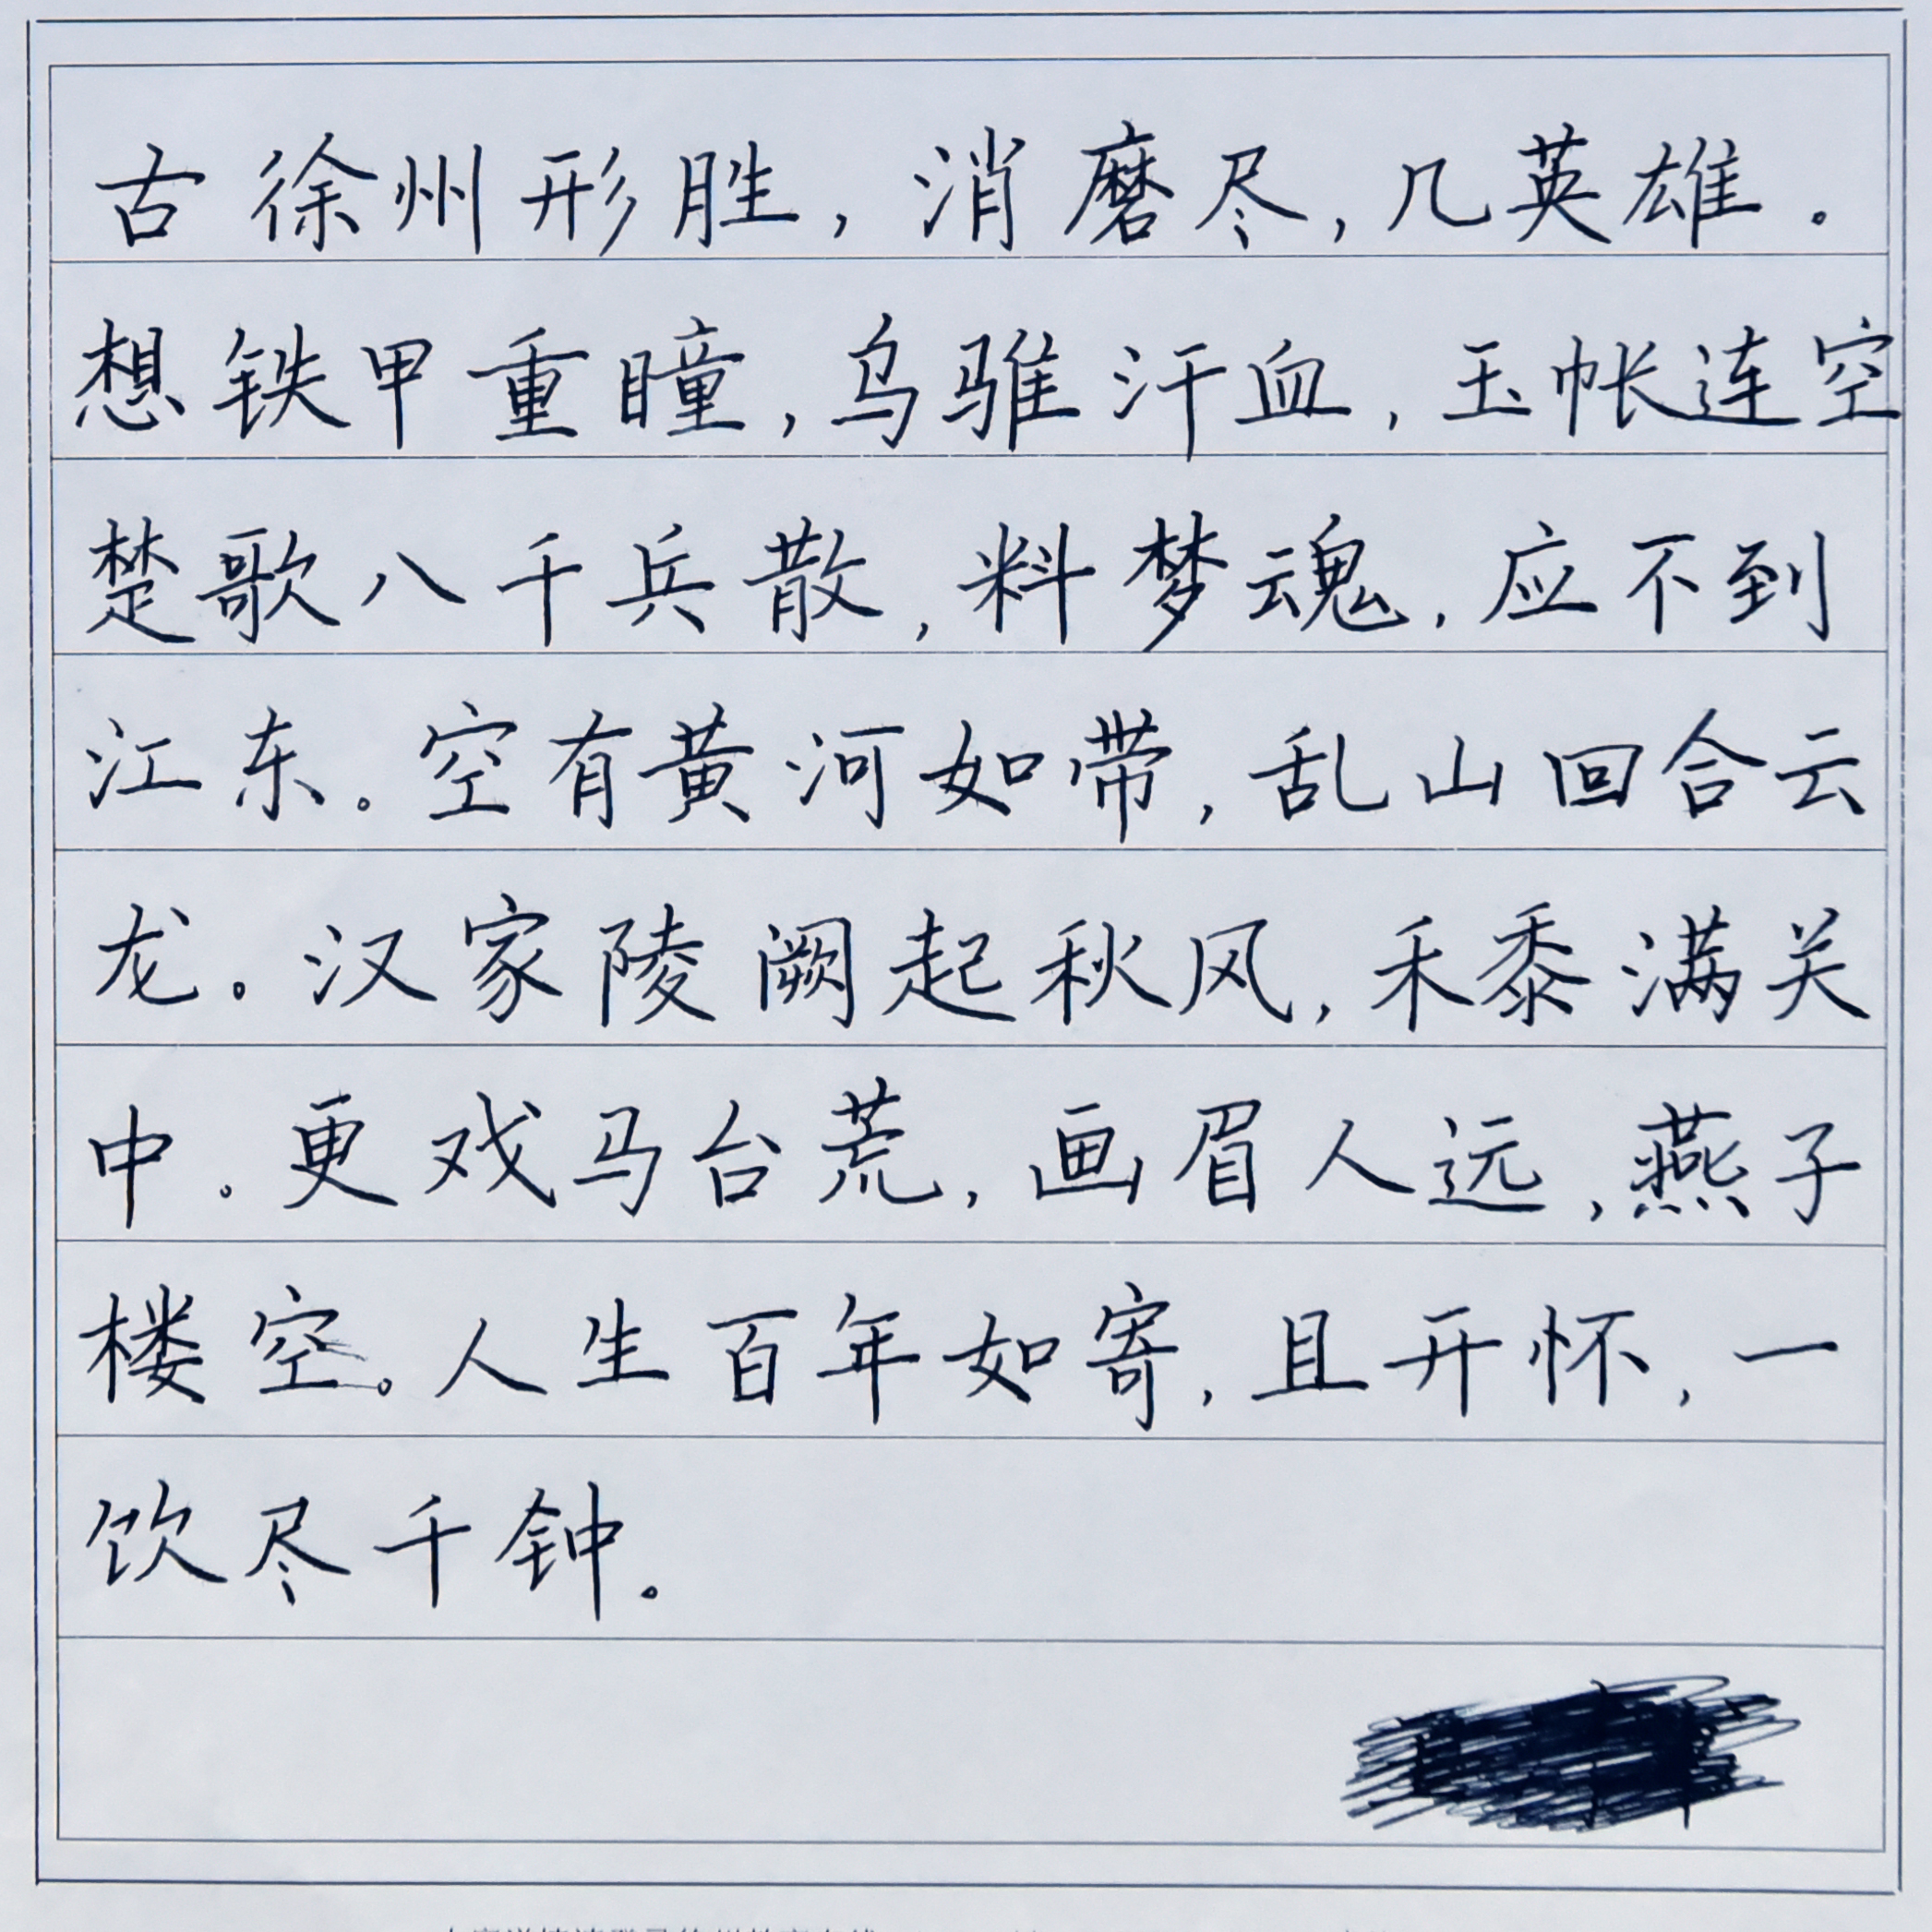 古徐州形胜，消磨尽，几英雄。
想铁甲重瞳，乌骓汗血，玉帐连空
楚歌八千兵散，料梦魂，应不到
江东。空有黄河如带，乱山回合云
龙。汉家陵阙起秋风，禾黍满关
中。更戏马台荒，画眉人远，燕子
楼空。人生百年如寄，且开怀，一
饮尽千钟。